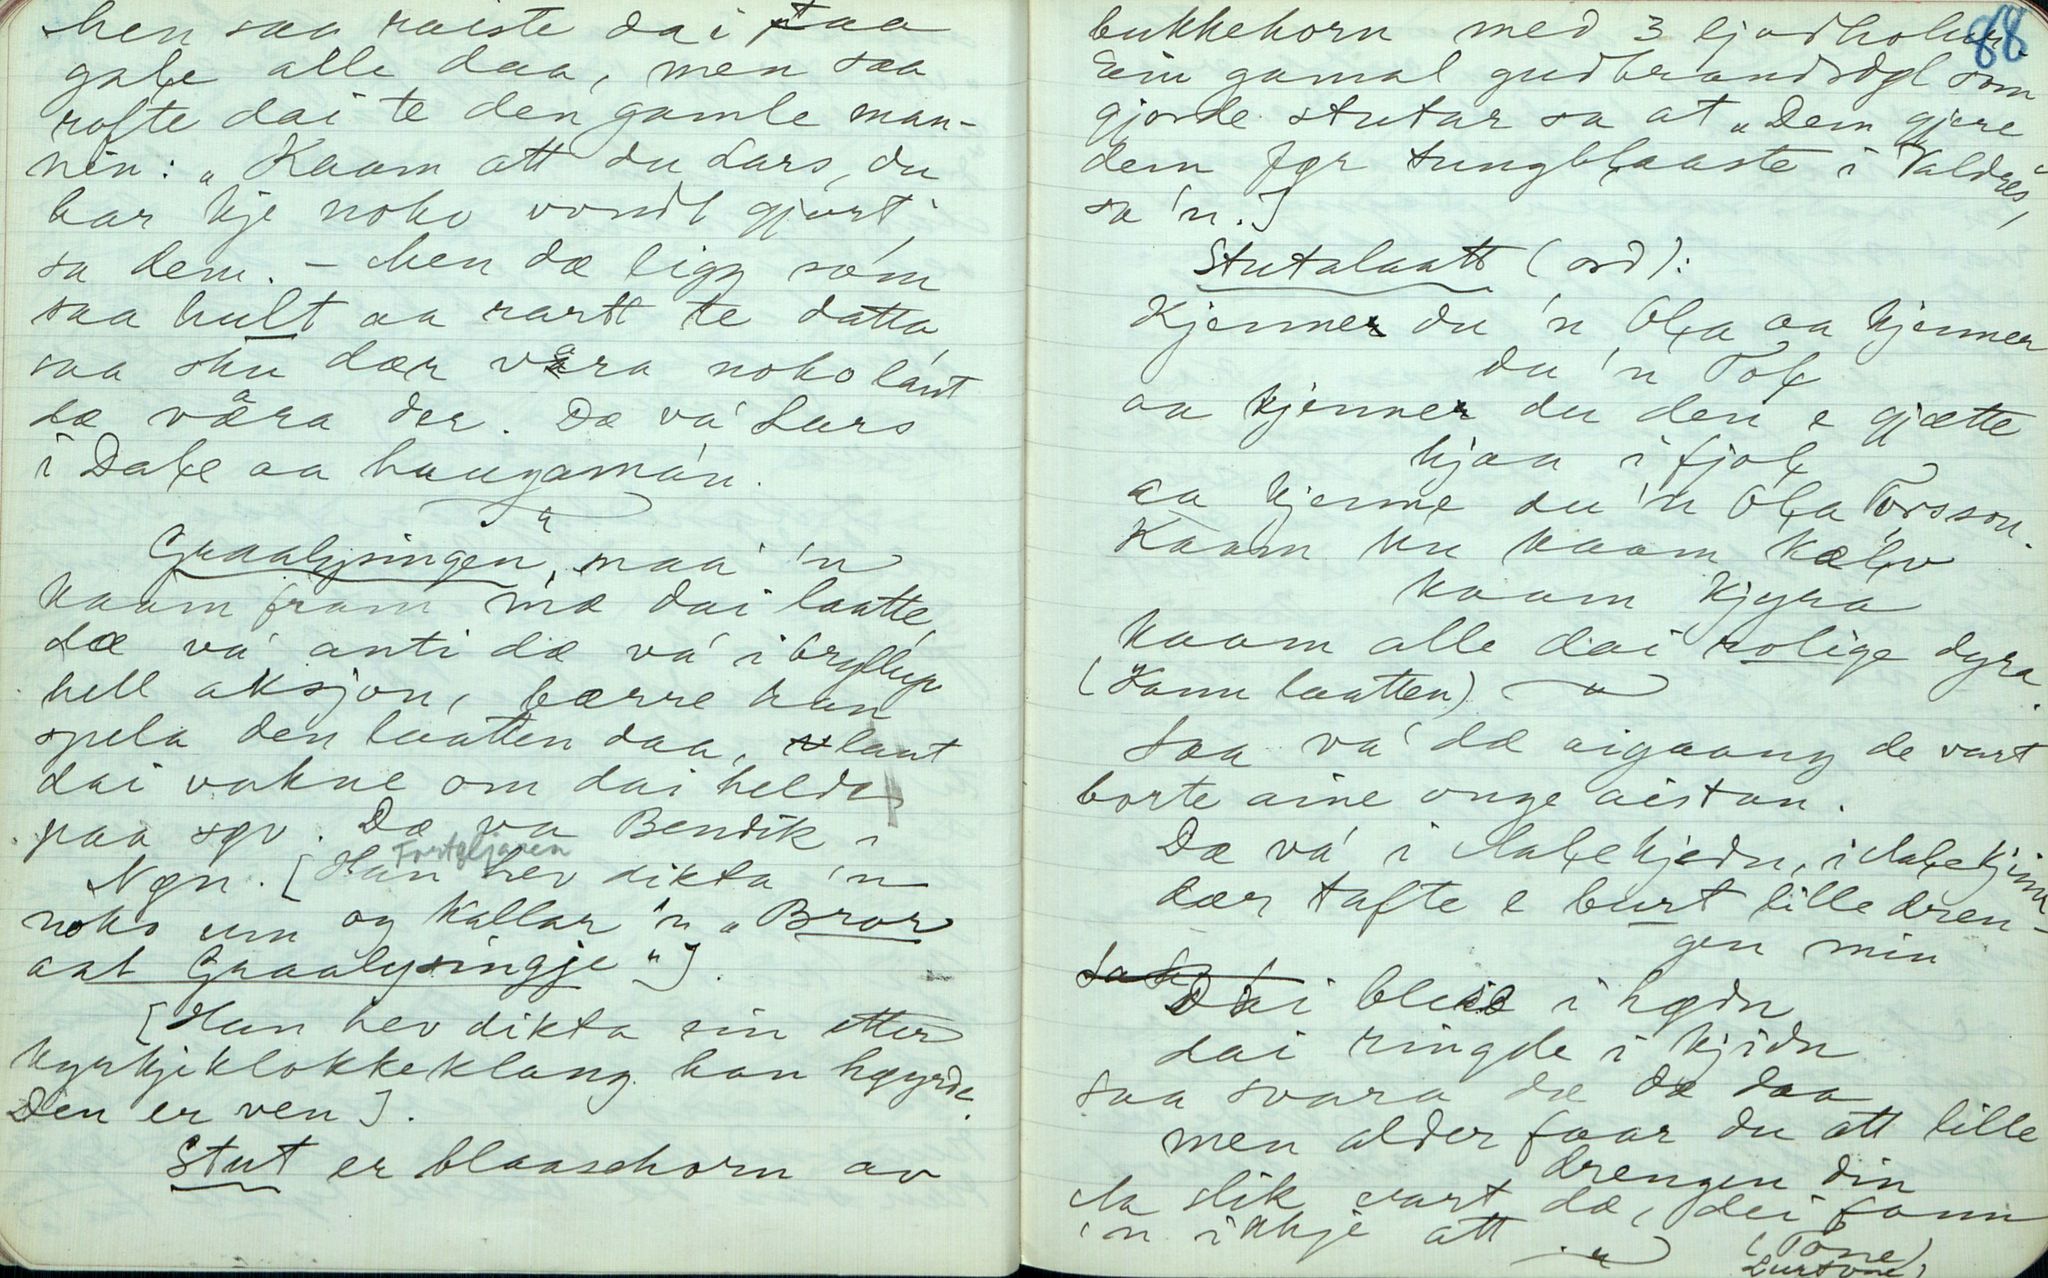 men saa raiste dai taa
gaḷe alle daa, men saa
rofte dai te den gamle man-
nin: „Kaam att du Lars, du
har kje noko vondt gjort",
sa dem. – Men dæ ligg som
saa hult aa rartt te datta,
saa sku dær våra noko lánt
dæ våra der. Dæ vá Lars
i Daḷe aa haugamán.
Graaḷysingen, maa 'n
kaam fram mæ dai laatte,
dæ vá anti dæ vá i bryllup
hell aksjon, bærre han
spela den laatten daa, slant
dai vakne om dai helde
paa søv. Dæ va Bendik i
Fortæljaren
Nøn. [Han hev dikta 'n
noko um og kallar 'n „Bror
aat Graalysingje"].
[Han hev dikta ein etter
kyrkjeklokkeklang han høyrde.
Den er ven].
Stut er blaasehorn av
88
bukkehorn med 3 ljodholur.
Ein gamal gudbrandsdøl som
gjorde stutar sa at „Dem gjere
dem for tungblaaste i Valdres",
sa 'n.]
Stutalaatt (ord):
Kjenner du 'n Oḷa aa kjenner
du 'n Toḷ
aa kjenner du den e gjætte
hjaa i fjoḷ
aa kjenne du 'n Oḷa Torsson.
Kaam ku kaam kæḷv
kaam kjyra
kaam alle dai rolige dyra.
(Kann laatten)
Saa vá dæ aigaang de vart
borte aine onge aistan.
Dæ vá i Maḷekjedn, i Maḷekjinn
dær tafte e burt lille dren-
gen min
Dai bles i hødn
dai ringde i kjidn
saa svara dæ dæ daa
men alder faar du att lille
drengen din
Ja slik vart dæ, dei fann
'n ikkje att
(Tone)